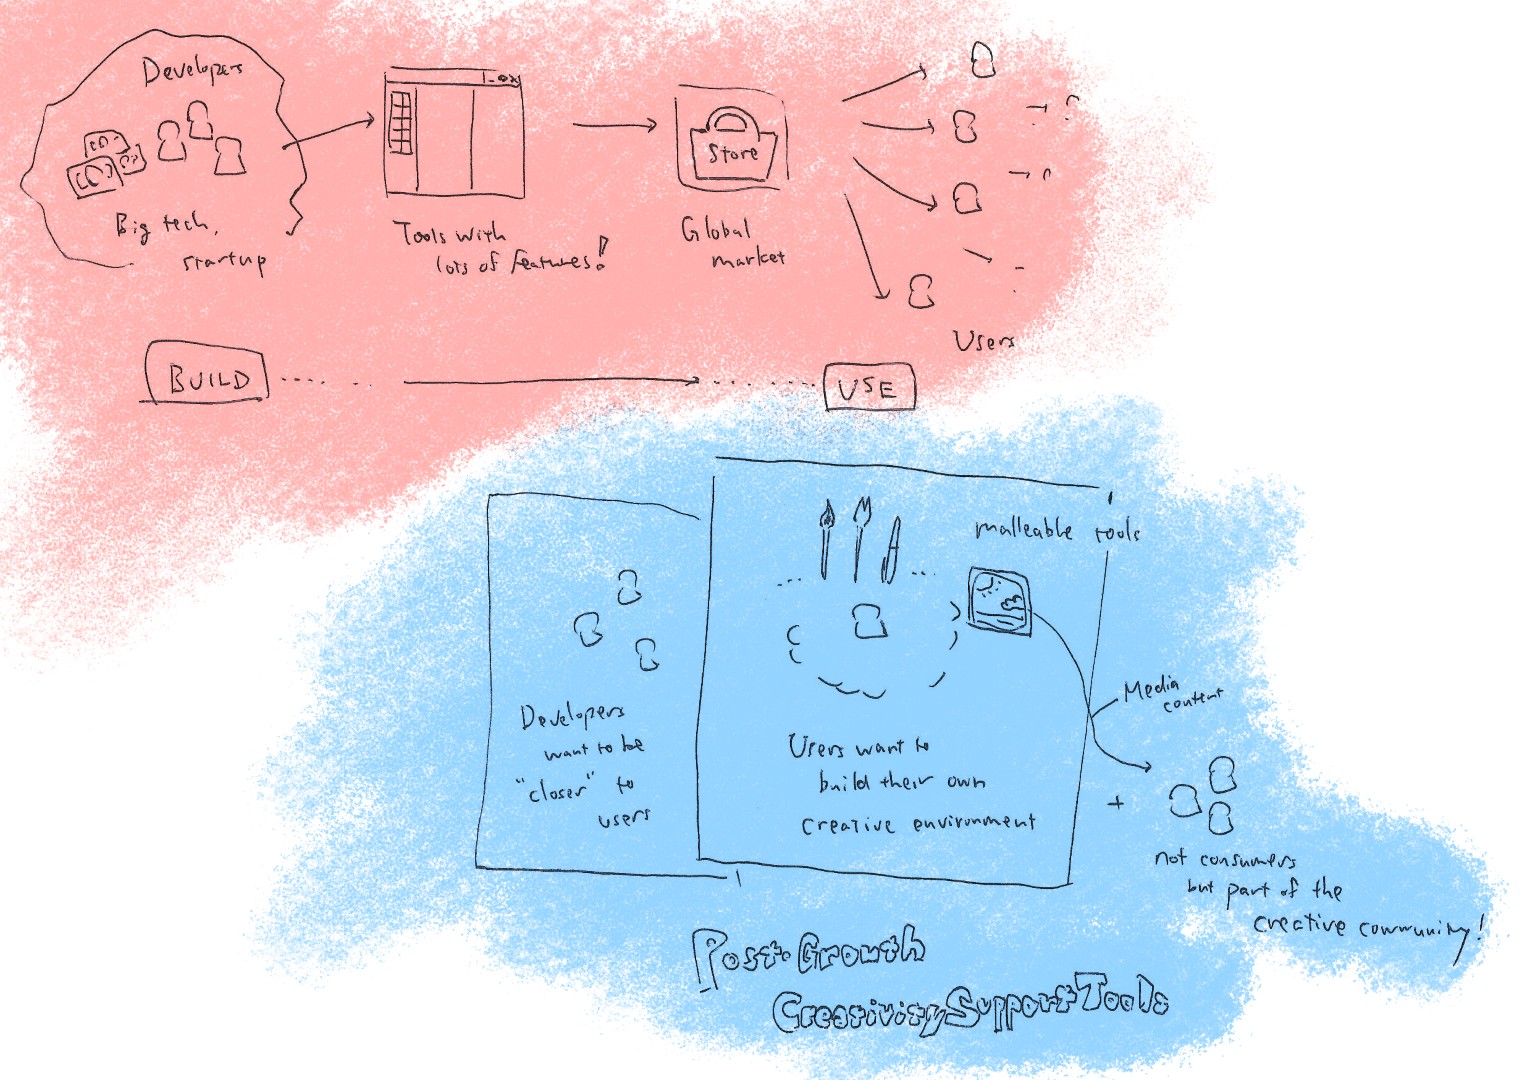 Developers
Big tech,
startup
Tools with
lots of features!
Store
Global
market
Users
BUILD
USE
malleable tools
Developers
want to be
"closer" to
users
Users want to
build their own
creative environment
Media
content
+
not consumers
but part of the
creative community!
Post-Growth
CreativitySupportTools